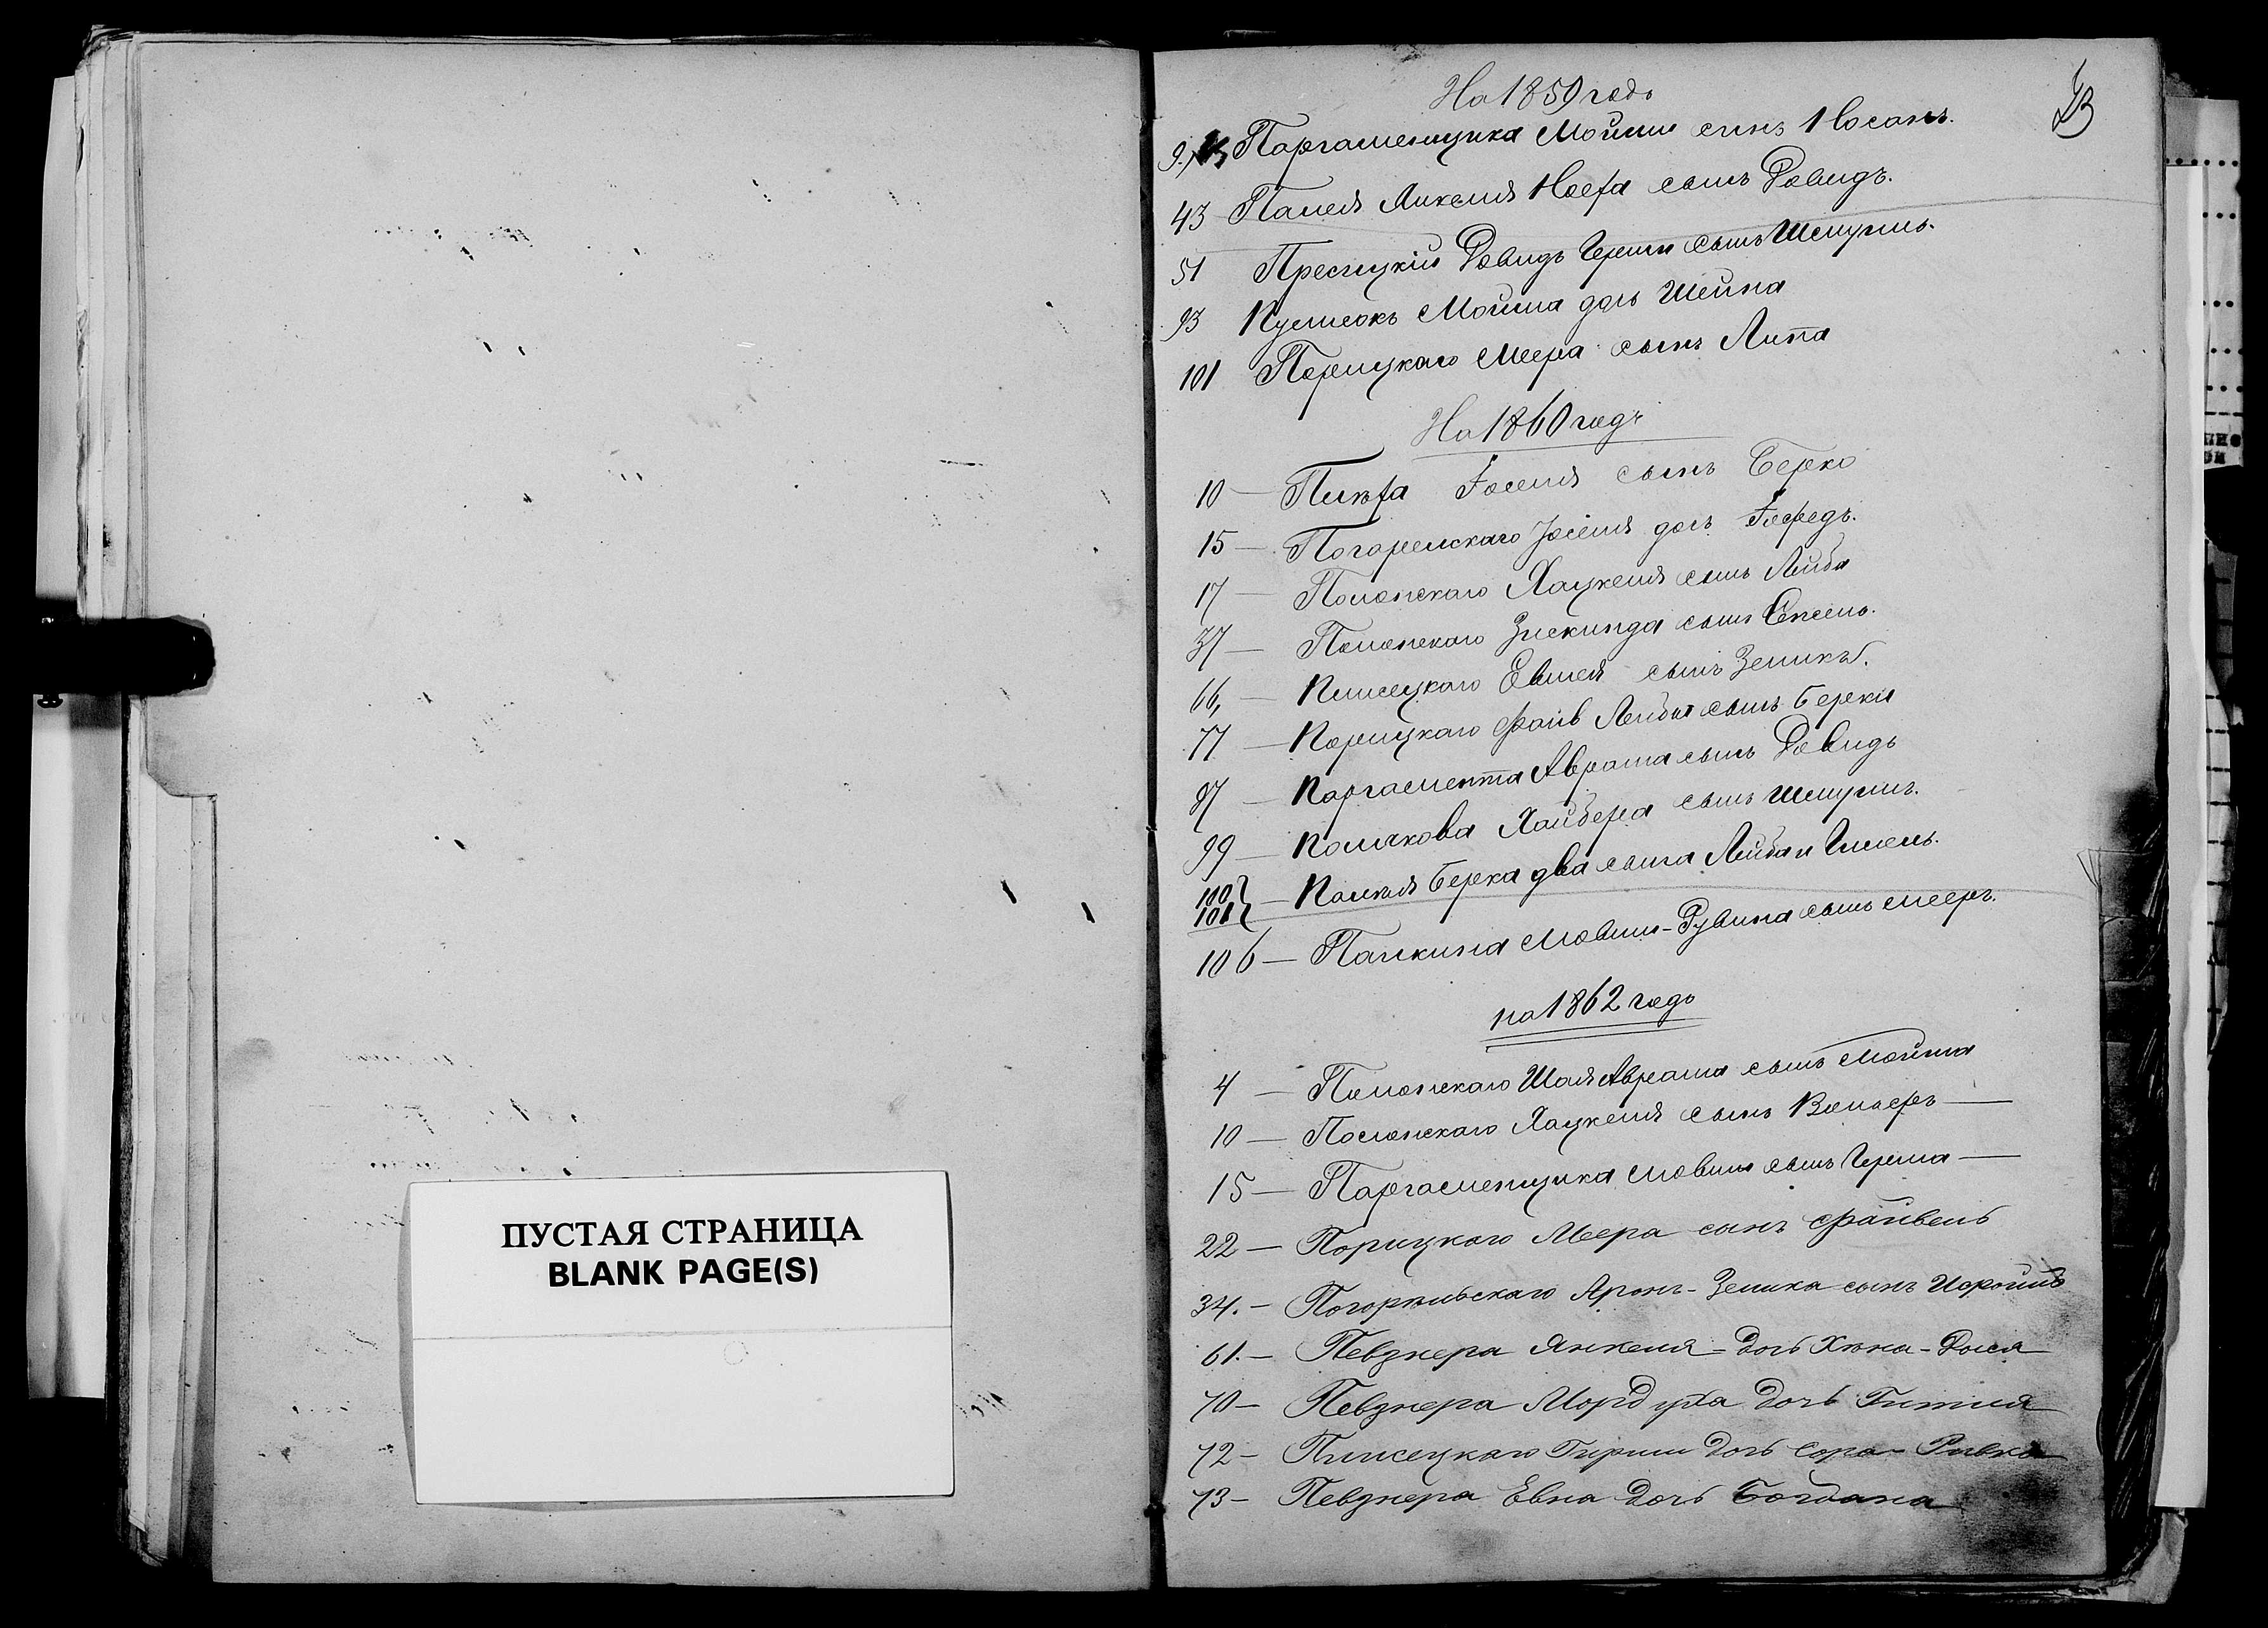 ПУСТАЯ СТРАНИЦА
BLANK PAGE(S)
На 1859 годъ
9. Паргаменщика Мойши сынъ Носанъ.
43 Палея Янкеля Ноеха сынъ Довидъ.
51 Пресицкій Довидъ Герши сынъ Шмуилъ.
93 Мойша дочь Шейна
101 Порицкаго Меера сынъ Липа
На 1860 годъ
10 — сынъ Берко
15 — Погорельскаго Іоселя дочь
17 — Полонскаго Хацкеля сынъ Лейба
37 — Полонскаго Зискинда сынъ
66, — Плисецкаго Евшея сынъ Зеликъ.
77 — Порицкаго Файв Лейбы сынъ Берка
97 — Паргамента Аврама сынъ Довидъ
99 — Полякова Хайбера сынъ Шмуилъ.
100 101 — Палея Берка два сына Лейба и Гилель.
106 — Палкина Мовши-Рувина сынъ Мееръ.
на 1862 годъ
4 — Полонскаго Шая Аврама сынъ Мойша
10 — Полонскаго Хацкеля сынъ —
15 — Паргаменщика Мовши сынъ Герша —
22 — Порицкаго Меера сынъ Файвель
34. — Погорельскаго Аронъ-Зелика сынъ Исроиль
61. — Певзнера Янкеля - дочь Хьена-Дыся
70 — Певзнера Мордуха дочь Гитля
72 — Плисецкаго Гирши дочь Сора-Ривка
73 — Певзнера Евна дочь Богдана